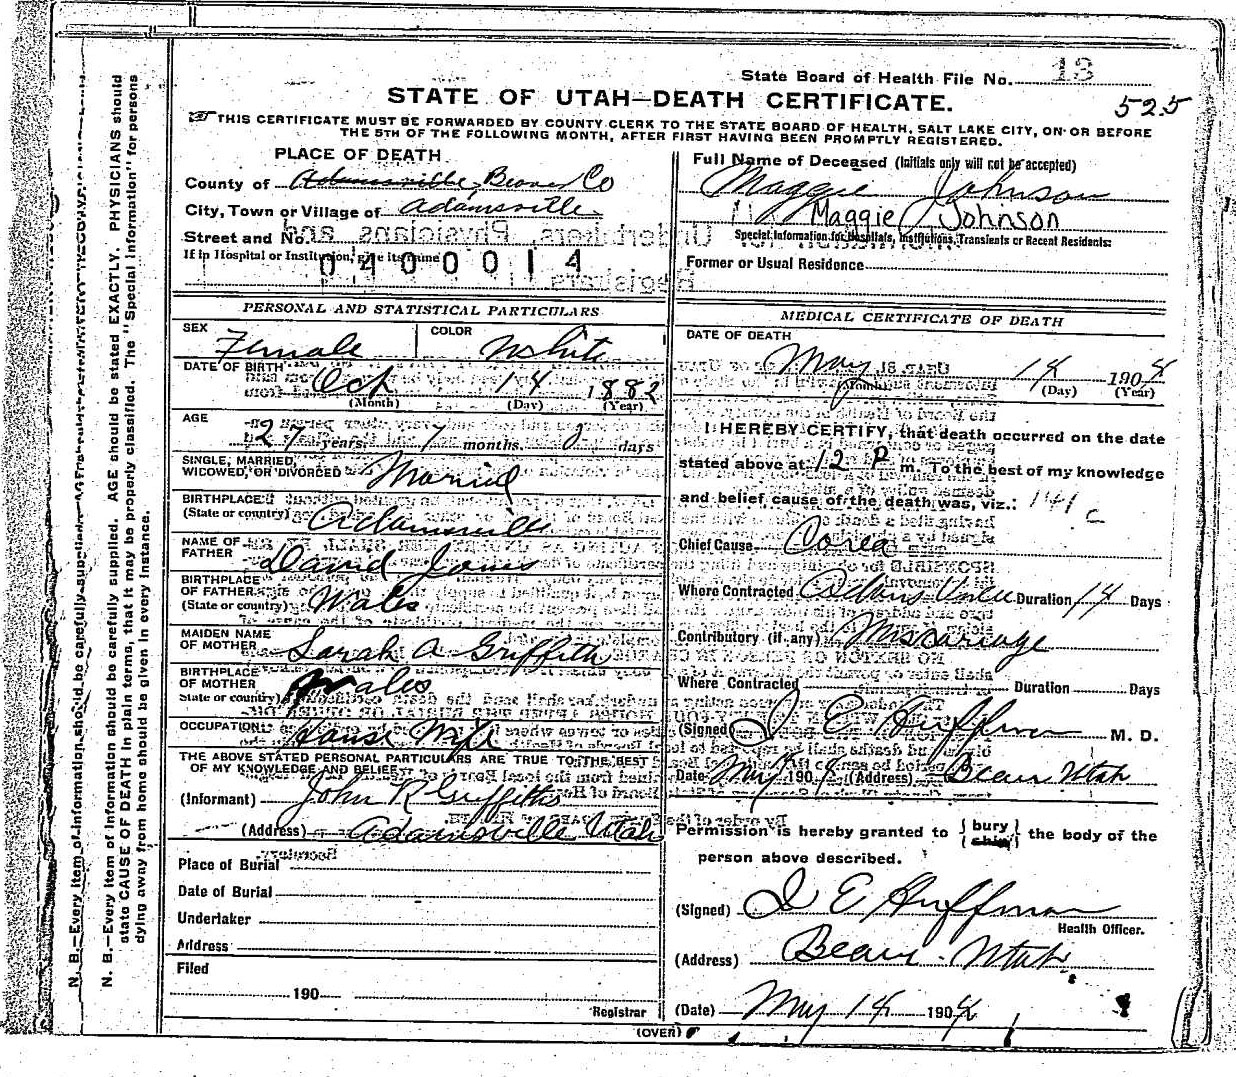 State Board of Health File No. 13
525
STATE OF UTAH—DEATH CERTIFICATE.
THIS CERTIFICATE MUST BE FORWARDED BY COUNTY CLERK TO THE STATE BOARD OF HEALTH, SALT LAKE CITY, ON OR BEFORE
THE 5TH OF THE FOLLOWING MONTH, AFTER FIRST HAVING BEEN PROMPTLY REGISTERED.
PLACE OF DEATH
County of Adamsville Beaver Co
City, Town or Village of Adamsville
Street and No.
If in Hospital or Institution, give its name
0400014
Full Name of Deceased (Initials only will not be accepted)
Maggie Johnson
Maggie Johnson
Special Information for Hospitals, Institutions, Transients or Recent Residents:
Former or Usual Residence
PERSONAL AND STATISTICAL PARTICULARS
SEX Female
COLOR White
DATE OF BIRTH
Oct 14 1882
(Month) (Day) (Year)
AGE
27 years. 7 months. 0 days
SINGLE, MARRIED,
WIDOWED, OR DIVORCED Married
BIRTHPLACE
(State or country) Adamsville
NAME OF
FATHER David Jones
BIRTHPLACE
OF FATHER
(State or country) Wales
MAIDEN NAME
OF MOTHER Sarah A Griffith
BIRTHPLACE
OF MOTHER
State or country) Wales
OCCUPATION House Wife
THE ABOVE STATED PERSONAL PARTICULARS ARE TRUE TO THE BEST
OF MY KNOWLEDGE AND BELIEF
(Informant) John R Griffiths
(Address) Adamsville Utah
Place of Burial
Date of Burial
Undertaker
Address
Filed
190
Registrar
MEDICAL CERTIFICATE OF DEATH
DATE OF DEATH
May 14 190
(Month) (Day) (Year)
I HEREBY CERTIFY, that death occurred on the date
stated above at 12 P m. To the best of my knowledge
and belief cause of the death was, viz.: 141 c
Chief Cause Corea
Where Contracted Adamsville Duration 14 Days
Contributory (if any) Miscariage
Where Contracted Duration Days
(Signed) E Huffman M. D.
Date May 190 (Address) Beaver Utah
Permission is hereby granted to {bury ship} the body of the
person above described.
(Signed) E Huffman
Health Officer.
(Address) Beaver Utah
(Date) May 14 190
(OVER)
N. B.—Every item of information should be carefully supplied.
N. B.—Every item of information should be carefully supplied. AGE should be stated EXACTLY. PHYSICIANS should
state CAUSE OF DEATH in plain terms, that it may be properly classified. The "Special Information" for persons
dying away from home should be given in every instance.